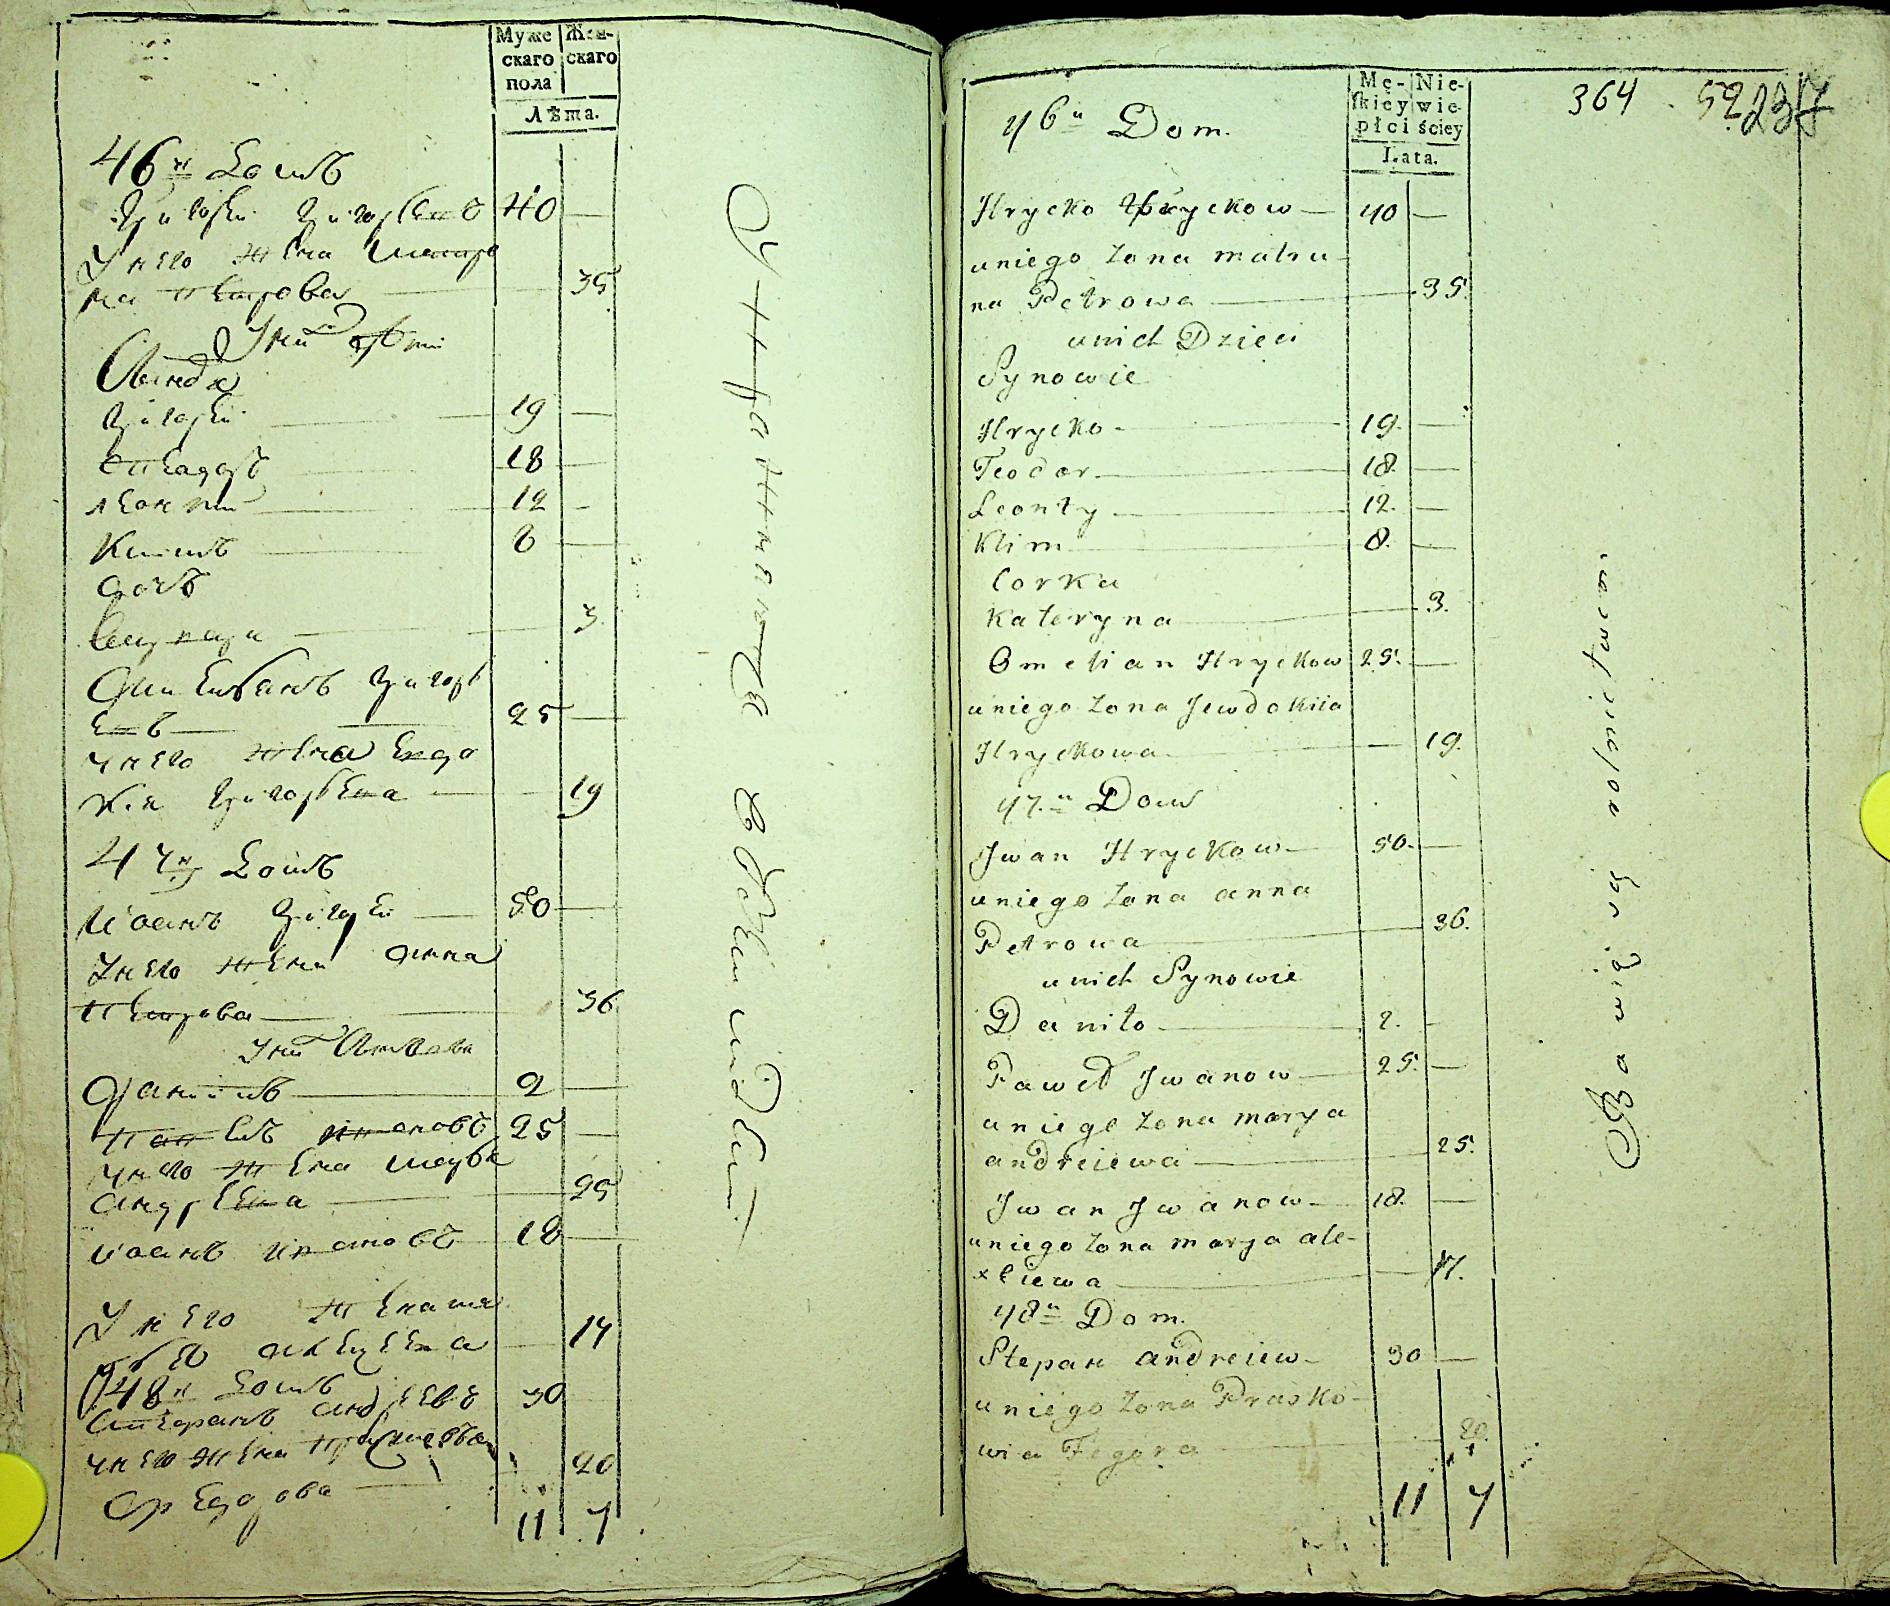 Муже
скаго
пола
Жен-
скаго
Лѣта.
46й Домъ
Григорей Григорьевъ 40 —
У него жена Матро
на Петрова — 35
У них дѣти
Сыновя
Григорей — 19 —
Феодоръ — 18 —
Леонтий — 12 —
Климъ — 8 —
дочь
Катерина — 3
Омельянъ Григорь
евъ — 25 —
У него жена Евдо
кия Григорьева — 19
47й Домъ
Иванъ Григорьев — 50 —
У него жена Анна
Петрова — 36
У них Сыновя
Данило — 2 —
Павелъ Ивановъ 25 —
У него жена Марья
Андреева — 25
Иванъ Ивановъ 18 —
У него жена Ма
рья Алексеева — 17
48й Домъ
Степанъ Андреевъ 30
У него жена Прасковья
Федорова — 20
11 7
Упражняются в хлебопашестве
364 59 237
Mę-
skiey
płci
Nie-
wie-
ściey
Lata.
46й Dom.
Hrycko Hryckow — 40 —
u niego Zona Matru
na Petrowa — 35.
u nich Dzieci
Synowie
Hrycko — 19. —
Teodor — 18. —
Leonty — 12. —
Klim — 8. —
Corka
Kateryna — 3.
Omelian Hryckow 25. —
u niego Zona Jewdokiia
Hryckowa — 19.
47.й Dom
Jwan Hryckow — 50. —
u niego Zona anna
Petrowa — 36.
u nich Synowie
Daniło — 2. —
Paweł Jwanow — 25. —
u niego Zona marya
andreiewa — 25.
Jwan Jwanow — 18. —
u niego Zona marya ale-
xiewa — 17.
48й Dom.
Stepan andreiew — 30 —
u niego Zona Prasko-
wia Fegora — 20.
11 7
Bawią się rolnictwem.